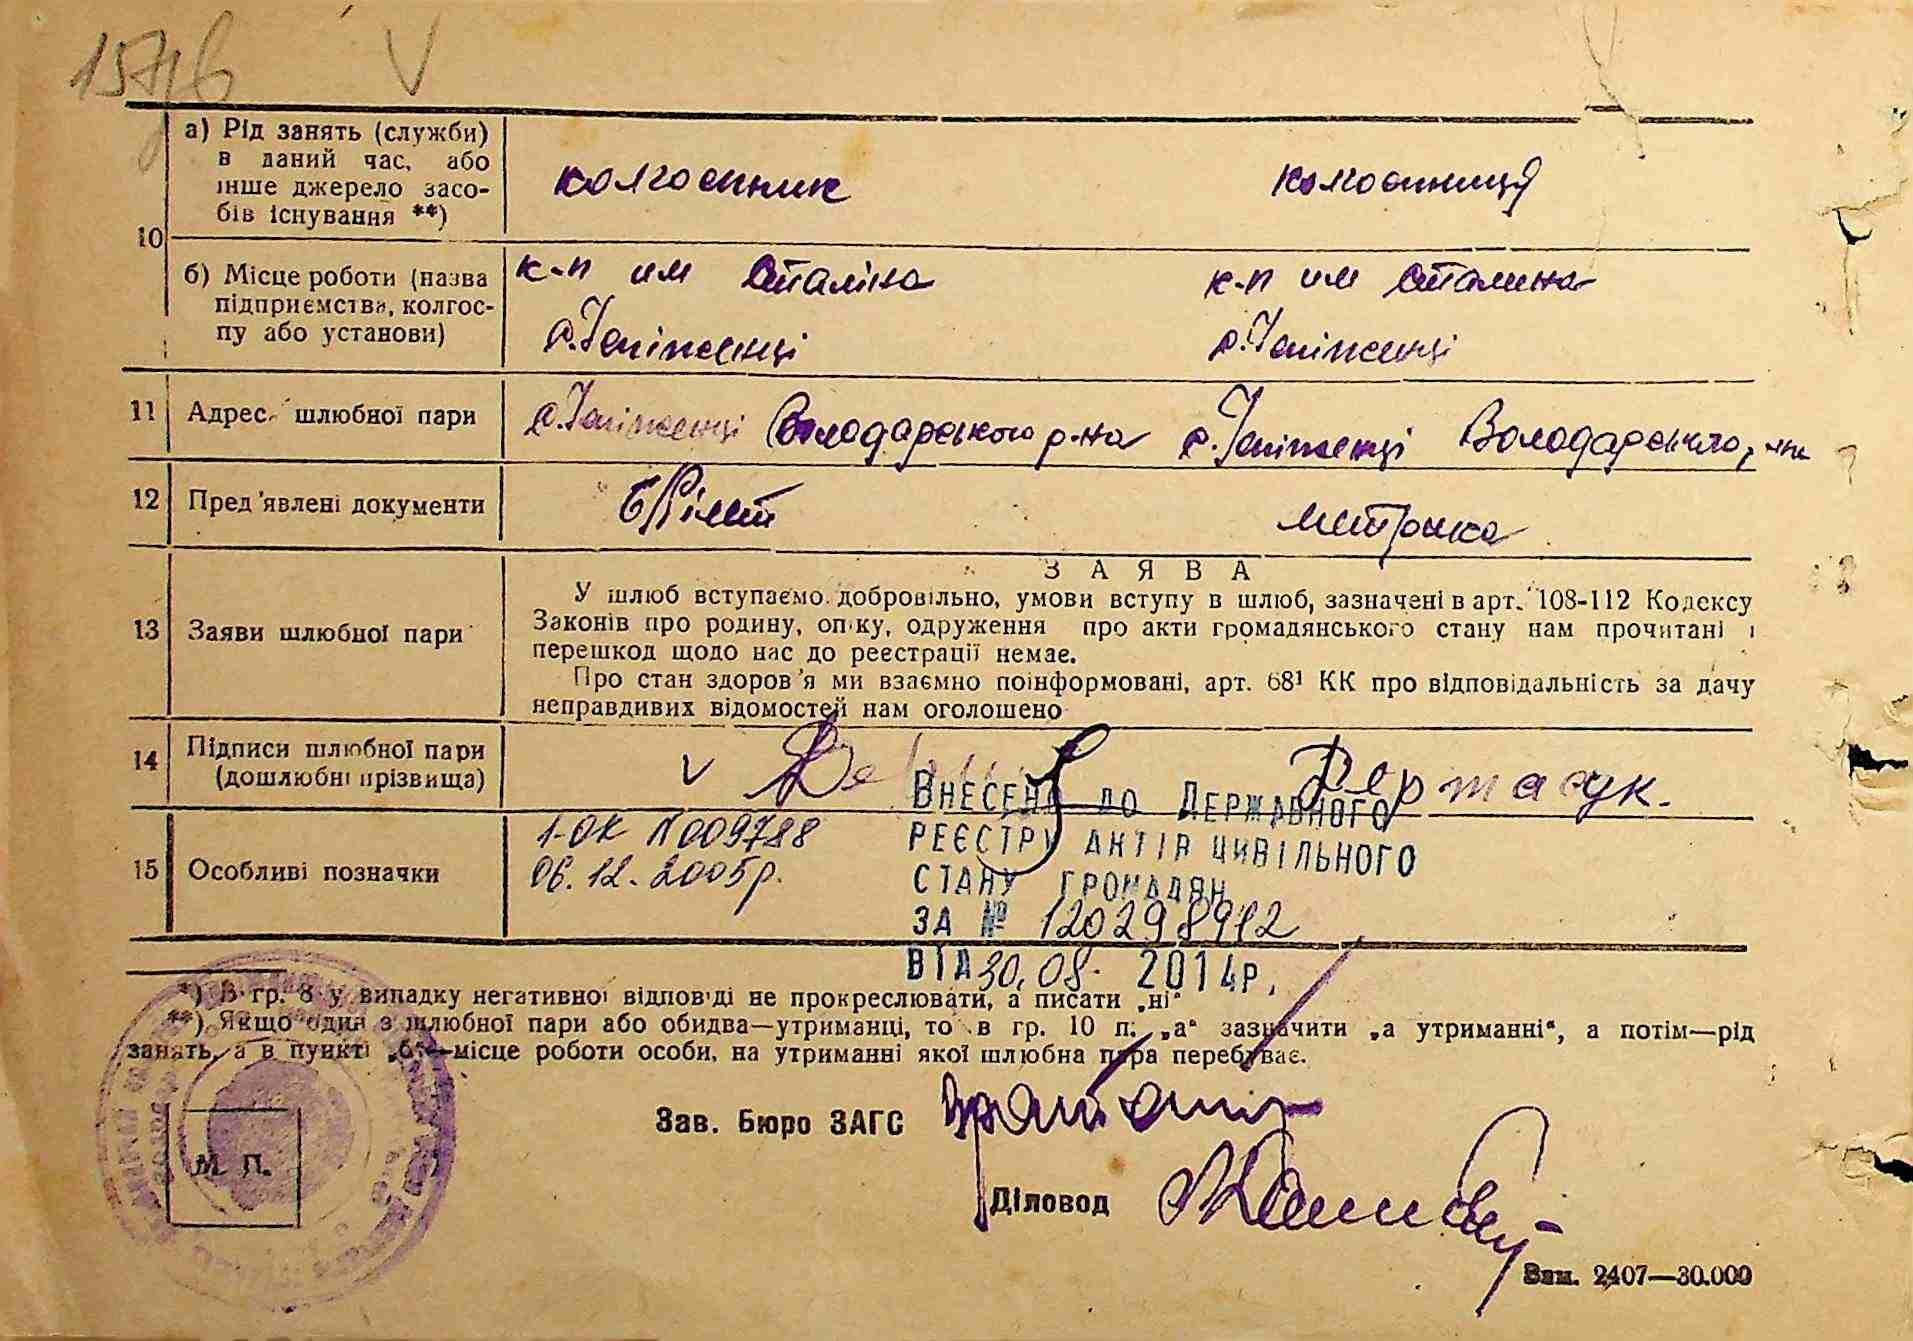 157/6 V
10
а) Рід занять (служби)
в даний час, або
інше джерело засо-
бів існування **)
колгоспник колгоспниця
б) Місце роботи (назва
підприємства, колгос-
пу або установи)
к-п им Сталіна к-п им Сталина
с. Гопіженці с. Гопіженці
11 Адрес шлюбної пари
с. Гопіженці Володарського р-на с. Гопіженці Володарського р-на
12 Пред'явлені документи
білет метрика
13 Заяви шлюбної пари
ЗАЯВА
У шлюб вступаємо добровільно, умови вступу в шлюб, зазначені в арт. 108-112 Кодексу
Законів про родину, опіку, одруження про акти громадянського стану нам прочитані і
перешкод щодо нас до реєстрації немає.
Про стан здоров'я ми взаємно поінформовані, арт. 68¹ КК про відповідальність за дачу
неправдивих відомостей нам оголошено
14 Підписи шлюбної пари
(дошлюбні прізвища)
V
15 Особливі позначки
1-ОК №009788
06.12.2005р.
Внесено до Державного
реєстру актів цивільного
стану громадян
за № 120298912
від 30.08. 2014р.
*) В гр. 8 у випадку негативної відповіді не прокреслювати, а писати „ні“
**) Якщо один з шлюбної пари або обидва—утриманці, то в гр. 10 п. „а“ зазначити „а утриманні“, а потім—рід
занять, а в пункті „б“—місце роботи особи, на утриманні якої шлюбна пара перебуває.
Зав. Бюро ЗАГС
М. П.
Діловод
Зам. 2407—30.000